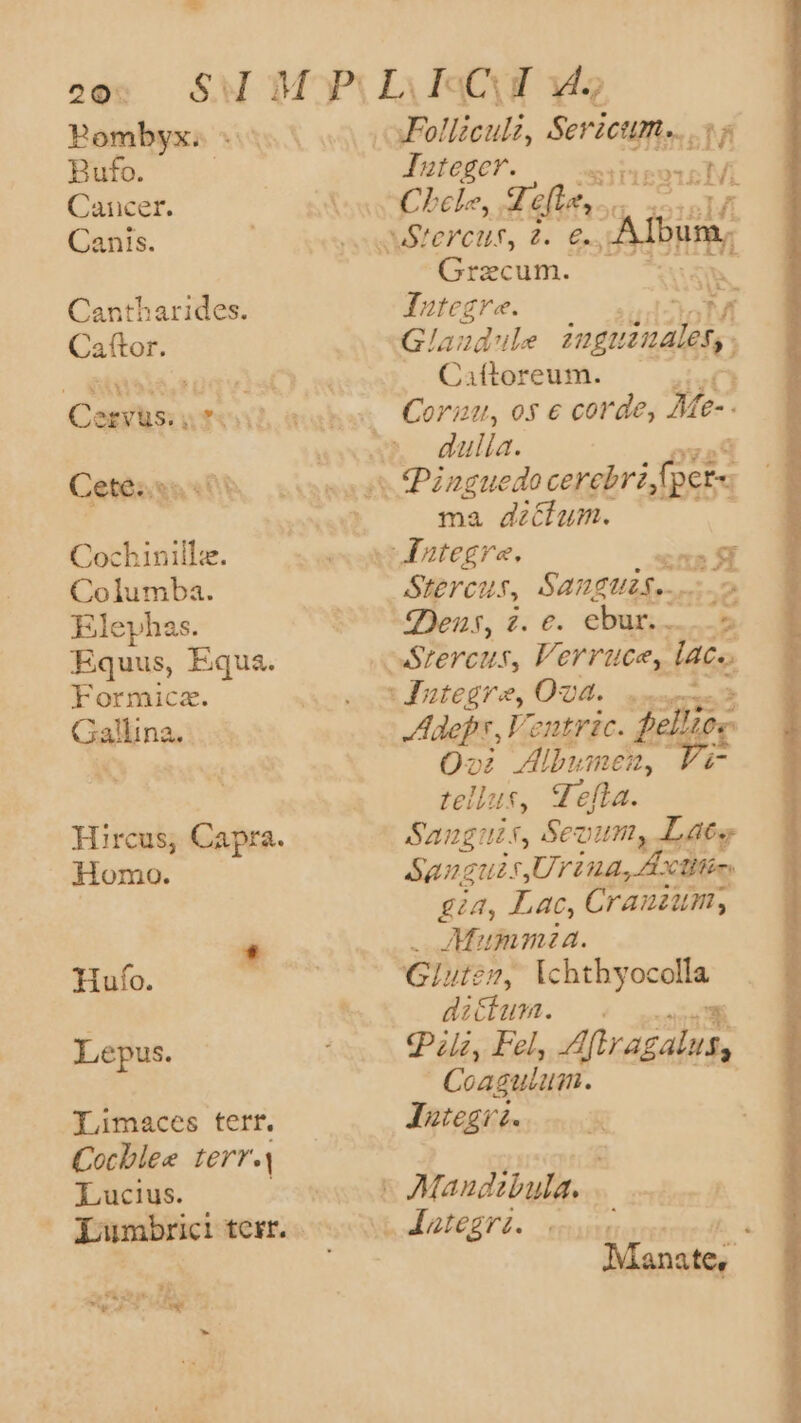 20 SIMPLICIA.
Bombyx. Folliculi, Sericum.
Bufo. Integer.
Cancer. Chelæ, Teſtæ,
Canis. Stercus, i. e. Album,
Græcum.
Cantharides. Integræ.
Caſtor. Glandulæ inguinales,
Caſtoreum.
Cervus. Cornu, os e corde, Me-
dulla.
Cete. Pinguedo cerebri, ſper-
ma dictum.
Cochinillæ. Integræ.
Columba. Stercus, Sanguis.
Elephas. Dens, i. e. ebur.
Equus, Equa. Stercus, Verrucæ, lac.
Formicæ. Integræ, Ova.
Gallina. Adeps, Ventric. pellic.
Ovi Albumen, Vi-
tellus, Teſta.
Hircus, Capra. Sanguis, Sevum, Lac.
Homo. Sanguis, Urina, Axun-
gia, Lac, Cranium,
Mummia.
Huſo. Gluten, Ichthyocolla
dictum.
Lepus. Pili, Fel, Aſtragalus,
Coagulum.
Limaces terr. Integri.
Cochleæ terr.
Lucius. Mandibula.
Lumbrici terr. Integri.
Manate,